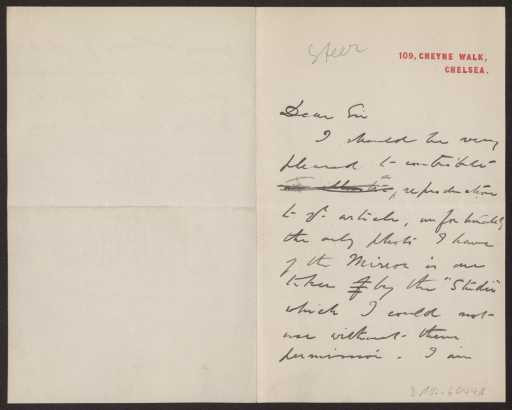 Steer
109, CHEYNE WALK,
CHELSEA.
Dear Sir
I should be very
pleased to contribute
a reproduction
to yr article, unfortunately
the only photo I have
of the Mirror is one
taken by the "Studio"
which I could not
use without their
permission. I am